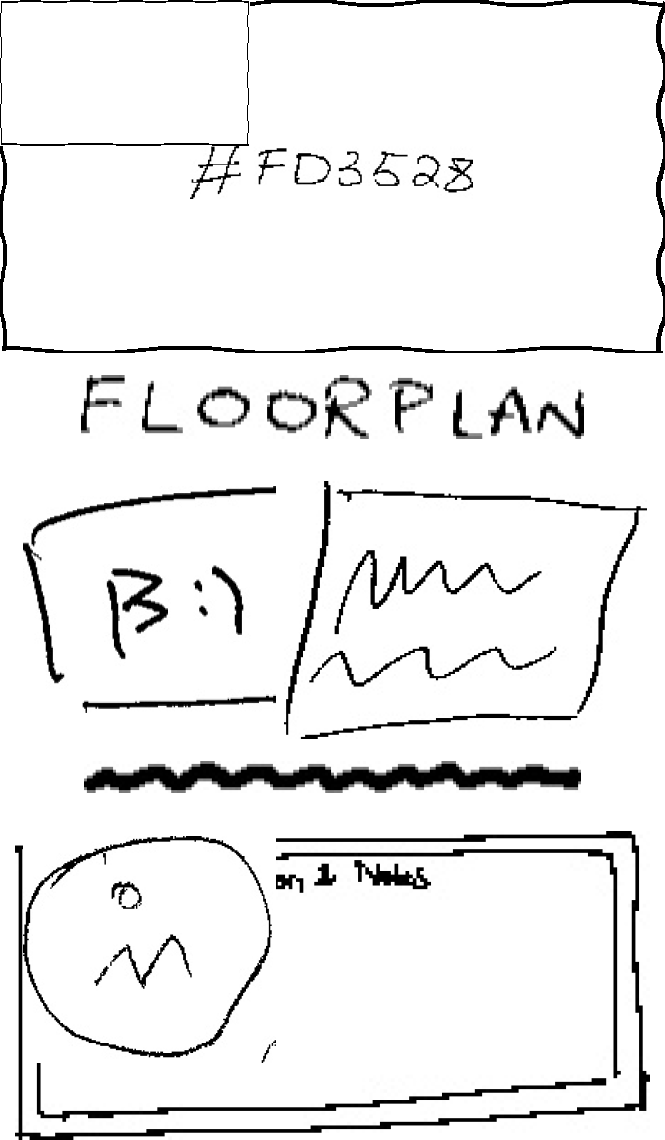 #FD3528
FLOORPLAN
B:)
on & Notes